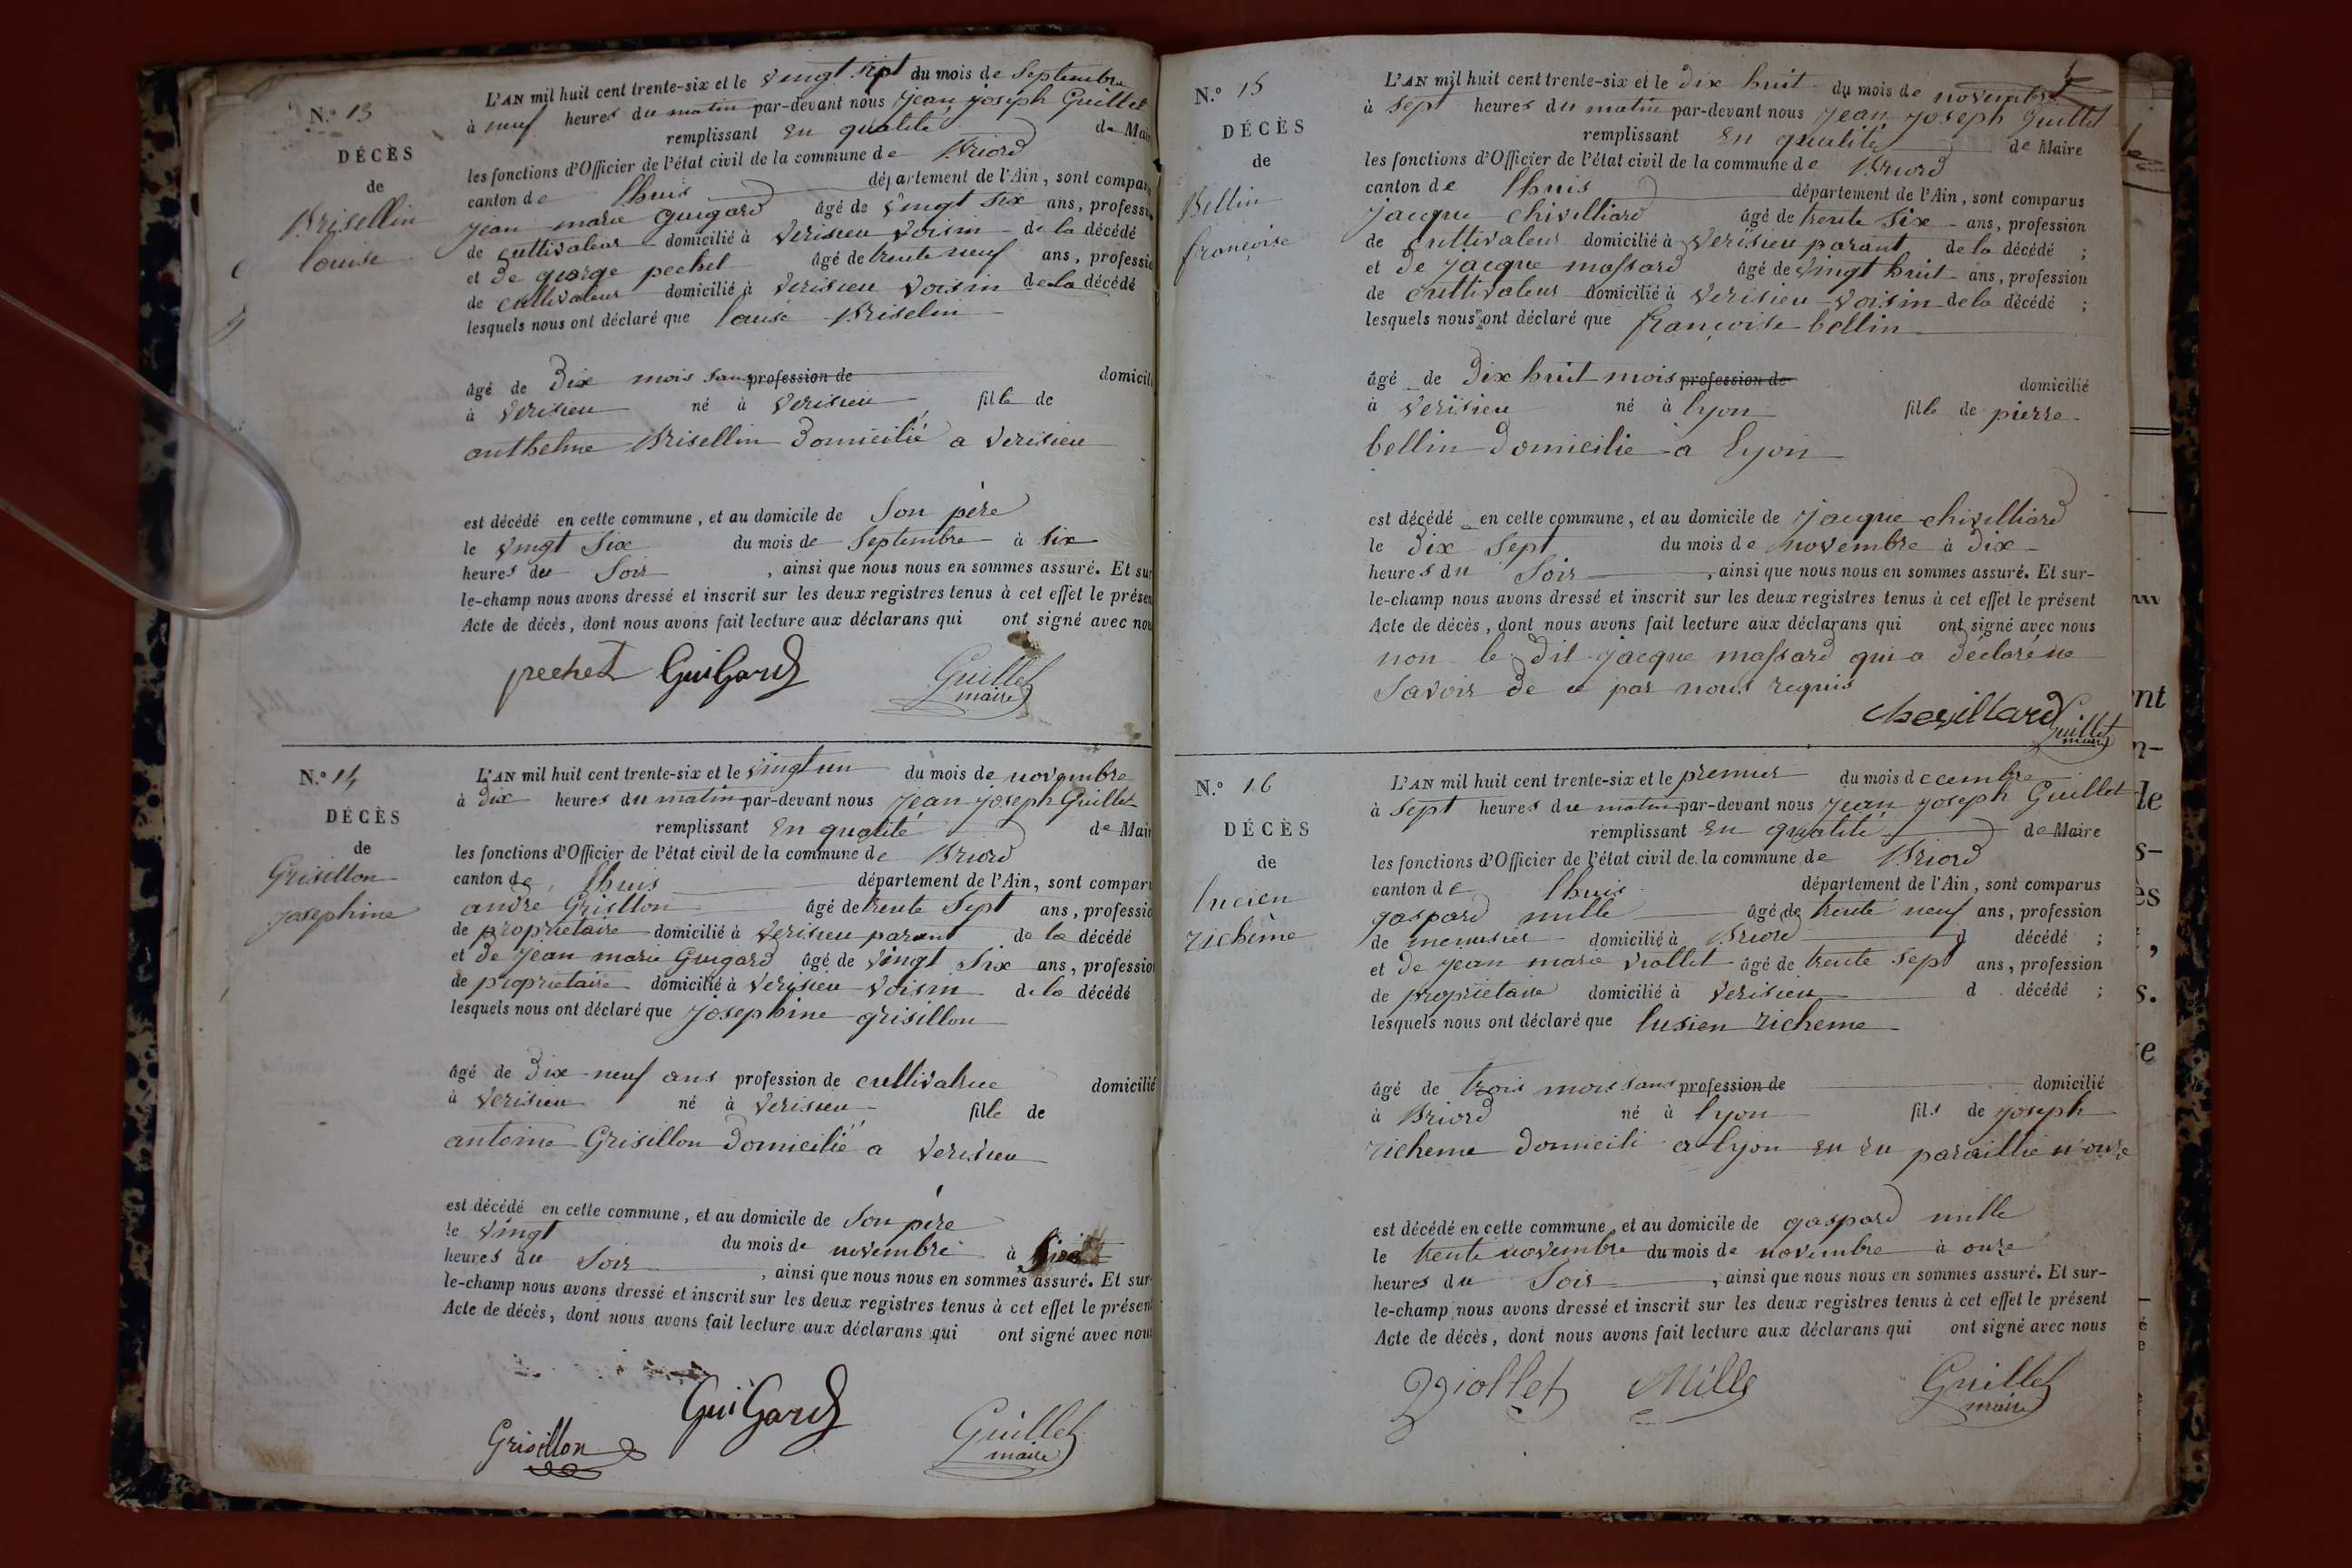 N.º 13
DÉCÈS
de
Brisellin
louise
L'AN mil huit cent trente-six et le vingt sept du mois de Septembre
à neuf heures du matin par-devant nous jean joseph Guillet
remplissant en qualité de Mair
les fonctions d'Officier de l'état civil de la commune de Briord
canton de lhuis département de l'Ain, sont compar
jean marie guigard âgé de vingt six ans, professi
de cultivateur domicilié à Verisieu voisin de la décédé
et de george pechet âgé de trente neuf ans, professio
de cultivateur domicilié à Verisieu voisin de la décédé
lesquels nous ont déclaré que louise Briselin
âgé de dix mois sans profession de domicili
à Verisieu né à Verisieu fille de
anthelme Brisellin domicilié a verisieu
est décédé en cette commune, et au domicile de Son père
le vingt Six du mois de Septembre à Six
heures du Soir, ainsi que nous nous en sommes assuré. Et sur
le-champ nous avons dressé et inscrit sur les deux registres tenus à cet effet le présen
Acte de décès, dont nous avons fait lecture aux déclarans qui ont signé avec nou
pechet GuiGard Guillet
maire
N.º 14
DÉCÈS
de
Grisillon
josephine
L'AN mil huit cent trente-six et le vingt un du mois de novembre
à dix heures du matin par-devant nous jean joseph Guillet
remplissant en qualité de Mair
les fonctions d'Officier de l'état civil de la commune de Briord
canton de lhuis département de l'Ain, sont compar
andré Grisllon âgé de trente Sept ans, professio
de propriétaire domicilié à Verisieu parent de la décédé
et de jean marie Guigard âgé de vingt Six ans, profession
de propriétaire domicilié à Verisieu voisin de la décédé
lesquels nous ont déclaré que josephine grisillon
âgé de dix neuf ans profession de cultivatrice domicilié
à Verisieu né à Verisieu fille de
antoine Grisillon domicilié a verisieu
est décédé en cette commune, et au domicile de Son père
le vingt du mois de novembre à
heures du Soir, ainsi que nous nous en sommes assuré. Et sur
le-champ nous avons dressé et inscrit sur les deux registres tenus à cet effet le présent
Acte de décès, dont nous avons fait lecture aux déclarans qui ont signé avec nous
GuiGard
Grisillon Guillet
maire
N.º 15
DÉCÈS
de
Bellin
françoise
L'AN mil huit cent trente-six et le dix huit du mois de novembre
à sept heures du matin par-devant nous jean joseph Guillet
remplissant en qualité de Maire
les fonctions d'Officier de l'état civil de la commune de Briord
canton de lhuis département de l'Ain, sont comparus
jacque chivilliard âgé de trente Six ans, profession
de cultivateur domicilié à Verisieu parant de la décédé ;
et de jacque massard âgé de vingt huit ans, profession
de cultivateur domicilié à Verisieu voisin de la décédé ;
lesquels nous ont déclaré que françoise bellin
âgé de dix huit mois profession de domicilié
à Verisieu né à lyon fille de pierre
bellin domicilie a lyon
est décédé en cette commune, et au domicile de jacque chivilliard
le dix Sept du mois de novembre à dix
heures du Soir, ainsi que nous nous en sommes assuré. Et sur-
le-champ nous avons dressé et inscrit sur les deux registres tenus à cet effet le présent
Acte de décès, dont nous avons fait lecture aux déclarans qui ont signé avec nous
non le dit jacque massard qui a déclaré ne
Savoir de ce par nous requis
chevillard Guillet
maire
N.º 16
DÉCÈS
de
lucien
richème
L'AN mil huit cent trente-six et le premier du mois decembre
à sept heures du matin par-devant nous jean joseph Guillet
remplissant en qualité de Maire
les fonctions d'Officier de l'état civil de la commune de Briord
canton de lhuis département de l'Ain, sont comparus
gaspard mille âgé de trente neuf ans, profession
de menusier domicilié à Briord d décédé ;
et de jean marie viollet âgé de trente Sept ans, profession
de propriétaire domicilié à Verisieu d décédé ;
lesquels nous ont déclaré que lusien richeme
âgé de trois mois sans profession de domicilié
à Briord né à lyon fils de joseph
richeme domicili a lyon
est décédé en cette commune, et au domicile de gaspard mille
le trente novembre du mois de novembre à onze
heures du Soir, ainsi que nous nous en sommes assuré. Et sur-
le-champ nous avons dressé et inscrit sur les deux registres tenus à cet effet le présent
Acte de décès, dont nous avons fait lecture aux déclarans qui ont signé avec nous
Viollet Mille Guillet
maire